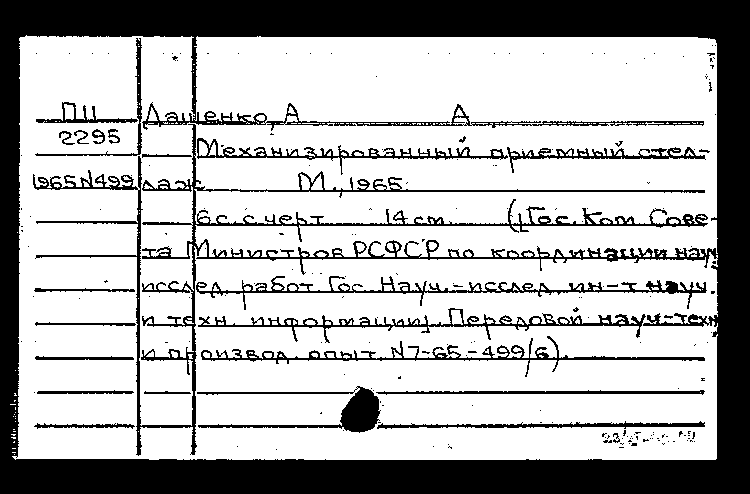 П11 Даценко, А А
2295 Механизированный приемный стел-
1965N499 лаж М., 1965.
6с. с черт. 14 см. ([Гос. Ком. Сове-
та Министров РСФСР по координации науч.
исслед. работ Гос. Науч.-исслед. ин-т науч.
и техн. информации]. Передовой науч.-техн.
и производ. опыт. N7-65-499/6).